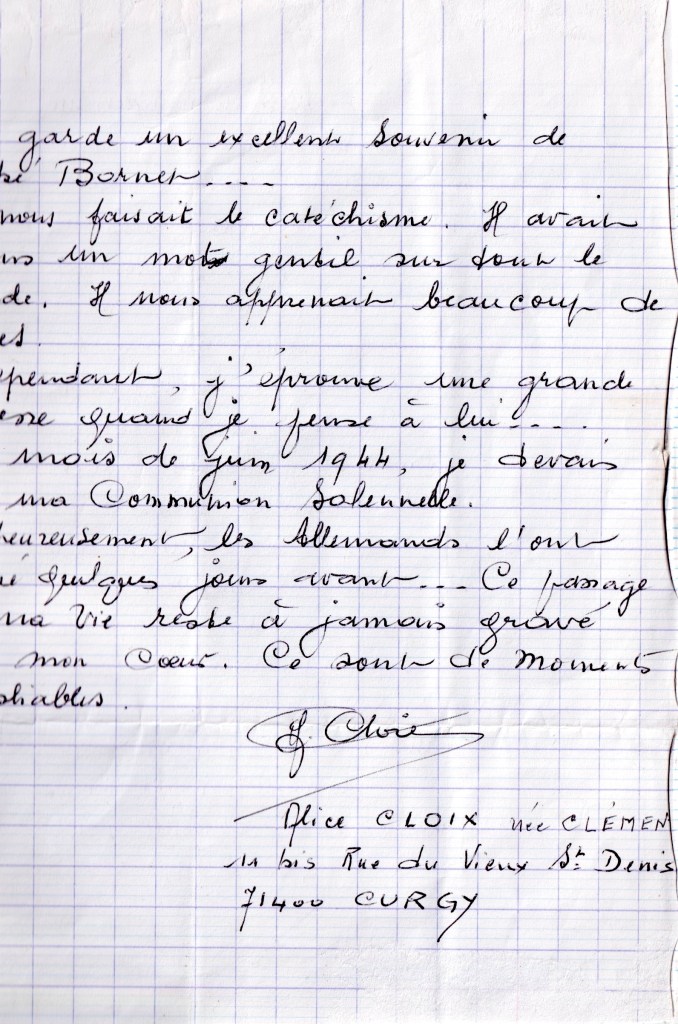 garde un excellent souvenir de
bé Bornet....
nous faisait le catéchisme. Il avait
rs un mot gentil sur tout le
de. Il nous apprenait beaucoup de
es.
ependant, j'éprouve une grande
esse quand je pense à lui....
mois de juin 1944, je devais
ma Communion Solennelle.
heureusement, les Allemands l'ont
é quelques jours avant.... Ce passage
ma Vie reste à jamais gravé
mon Coeur. Ce sont de moments
bliables.
Cloix
Alice CLOIX née CLÉMEN
11 bis Rue du Vieux St Denis
71400 CURGY